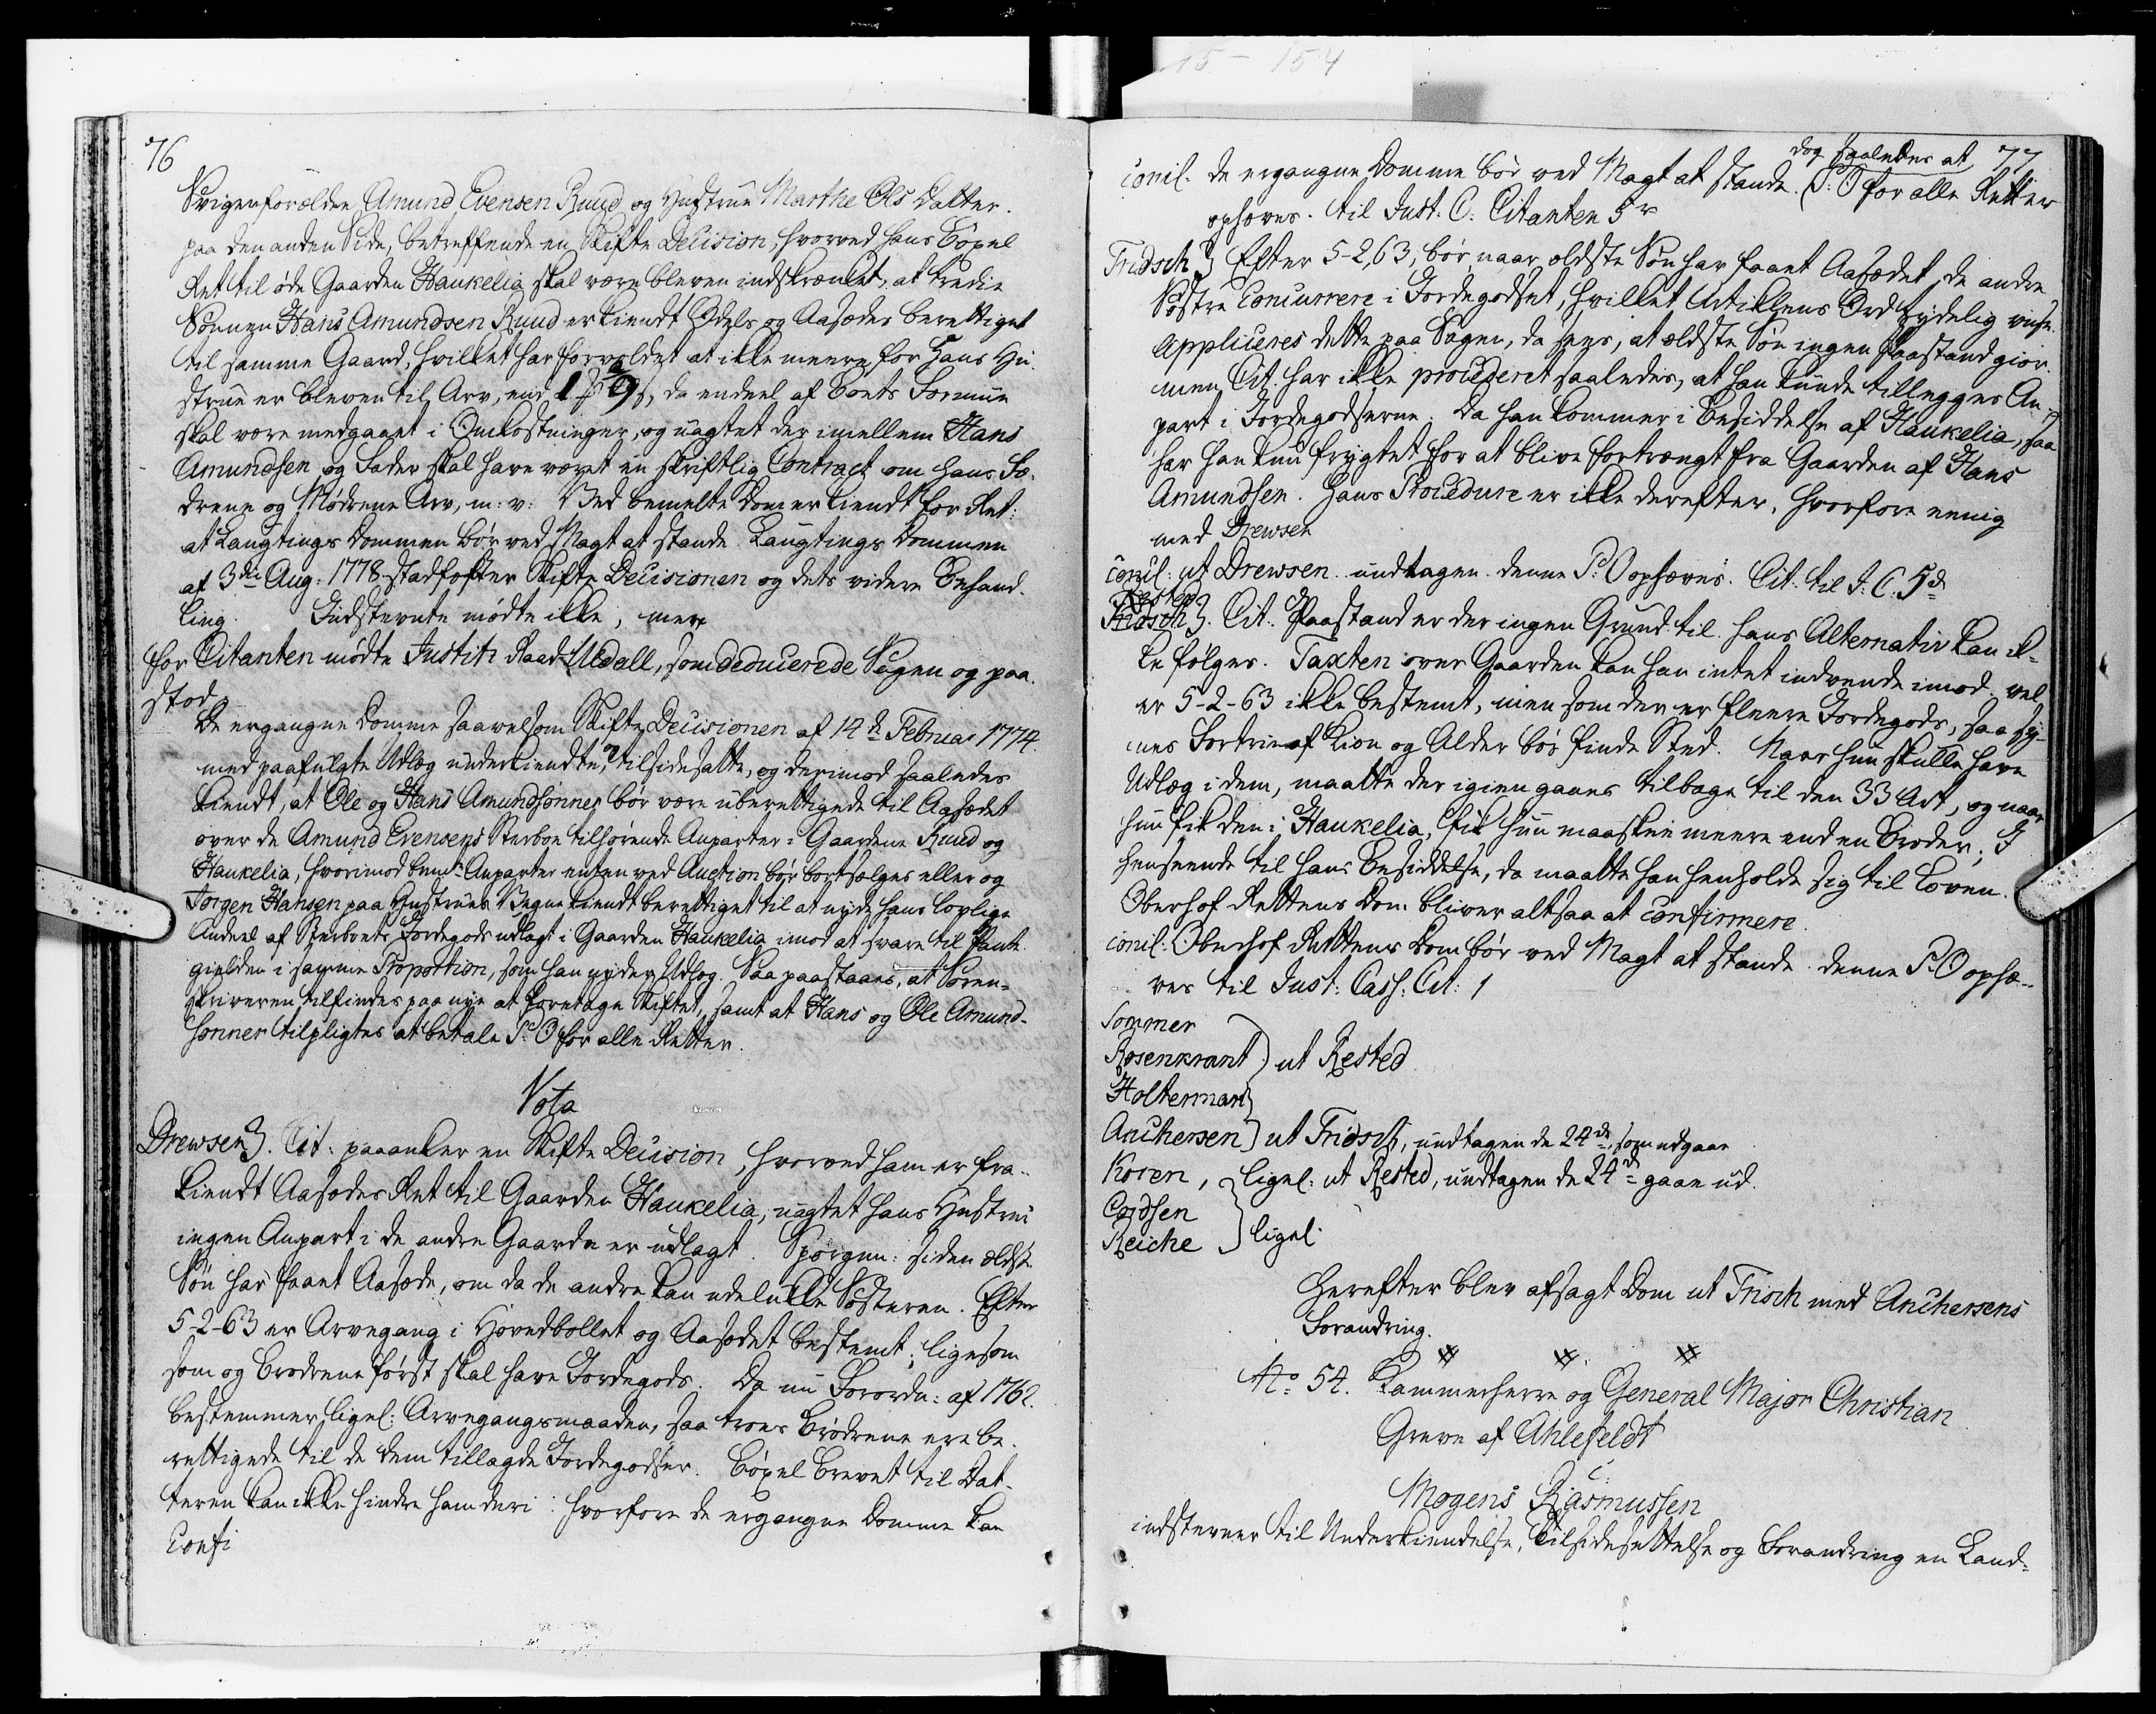 15 - 154
76
Svigerforældre Amund Evensen Ruud og Hustrue Marthe Ols Datter.
paa den anden Side, betreffende en Skifte Decision, hvorved hans Böxel
Ret til øde Gaarden Haukelia skal være bleven indskrænket, at tredie
Sönnen Hans Amundsen Ruud er kiendt Odels og Aasædes berettiget
til samme Gaard, hvilket har forvoldet at ikke meere for Hans Hu-
strue er bleven til Arv, end 1 9 s, da endeel af Boets Formue
skal være medgaaet i Omkostninger, og uagtet der imellem Hans
Amundsen og Fader skal have været en skriftlig Contract om hans Fæ-
drene og Mødrene Arv, m: v: Ved bemelte Dom er kiendt for Ret:
at Laugtings Dommen bör ved Magt at stande. Laugtings Dommen
af 3die Aug: 1778 stadfæster Skifte Decisionen og dets videre Behand-
ling. Indstevnte mødte ikke, men
for Citanten mødte Justitz Raad Uldall, som deducerede Sagen og paa-
stod
De ergangne Domme saavelsom Skifte Decisionen af 14de Februar 1774
med paafulgte Udlæg underkiendte, tilsidesatte, og derimod saaledes
kiendt, at Ole og Hans Amundsønner bör være uberettigede til Aasædet
over de Amund Evensens Sterboe tilhørende Anparter i Gaardene Ruud og
Haukelia, hvorimod bemte Anparter enten ved Auction bör bortsælges eller og
Jörgen Hansen paa Hustrues Vegne kiendt berettiget til at nyde hans lovlige
Andeel af Sterboets Jordegods udlagt i Gaarden Haukelia imod at svare til Pante
gielden i samme Proportion, som han nyder Udlæg. Saa paastaaes, at Soren-
skriveren tilfindes paa nye at foretage Skiftet, samt at Hans og Ole Amund-
sønner tilpligtes at betale P: O for alle Retter.
Vota
Drewsen. Cit: paaanker en Skifte Decision, hvorved ham er fra-
kiendt Aasædes Ret til Gaarden Haukelia, uagtet hans Hustrue
ingen Anpart i de andre Gaarde er udlagt. Spörgsm: siden ældste
Sön har faaet Aasæde, om da de andre kan udelukke Søsteren. Efter
5-2-63 er Arvegang i Hovedbollet og Aasædet bestemt; ligesom
som og Brødrene först skal have Jordegods. Da nu Forordn: af 1762.
bestemmer ligel: Arvegangsmaaden, saa troer Brødrene ere be-
rettigede til de dem tillagde Jordegodser. Böxel Brevet til Dat-
teren kan ikke hindre ham deri: hvorfore de ergangne Domme kan
Confi
77
dog saaledes at
concl. De ergangne Domme bör ved Magt at stande. P: O for alle Retter
ophæves. til Just: C: Citanten 5 r
Fridsch Efter 5-2,63, bör, naar ældste Sön har faaet Aasædet, de andre
Søstre Concurrere i Jordegodset, hvilket Articklens Ord tydelig vise.
Appliceres dette paa Sagen, da sees, at ældste Sön ingen Paastand giör.
men Cit. har ikke procederet saaledes, at han kunde tillægges An-
part i Jordegodserne. Da han kommer i Besiddelse af Haukelia, saa
har han kun frygtet for at blive fortrængt fra Gaarden af Hans
Amundsen. Hans Procedure er ikke derefter, hvorfore eenig
med Drewsen
concl: ut Drewsen. undtagen denne P: O ophæves. Cit. til J: C: 5 d
Rested
Fridsch. Cit: Paastand er der ingen Grund til. hans Alternativ kan ik-
ke følges. Taxten over Gaarden kan han intet indvende imod. vel
er 5-2-63 ikke bestemt, men som der er fleere Jordegods, saa sy-
nes Fortrin af Kion og Alder bör finde Sted. Naar hun skulle have
Udlæg i dem, maatte der igien gaaes tilbage til den 33 Art, og naar
hun fik den i Haukelia, fik hun maaskee meere end en Broder; I
henseende til hans Besiddelse, da maatte han henholde sig til Loven.
Oberhof Rettens Dom bliver altsaa at confirmere.
concl: Oberhof Rettens Dom bör ved Magt at stande. denne P: O ophæ-
ves til Just: Cass: Cit: 1
Sommer
Rosenkrant } ut Rested
Holterman
Anchersen } ut Fridsch, undtagen de 24 de, som udgaar
Koren, ligel: ut Rested, undtagen de 24 d gaae ud.
Cordsen
Reiche } ligel:
Herefter blev afsagt Dom ut Frisch med Anchersens
Forandring.
No: 54. Kammerherre og General Major Christian
Greve af Ahlefeldt
C:
Mogens Rasmussen
indstevner til Underkiendelse, Tilsidesettelse og Forandring en Land-